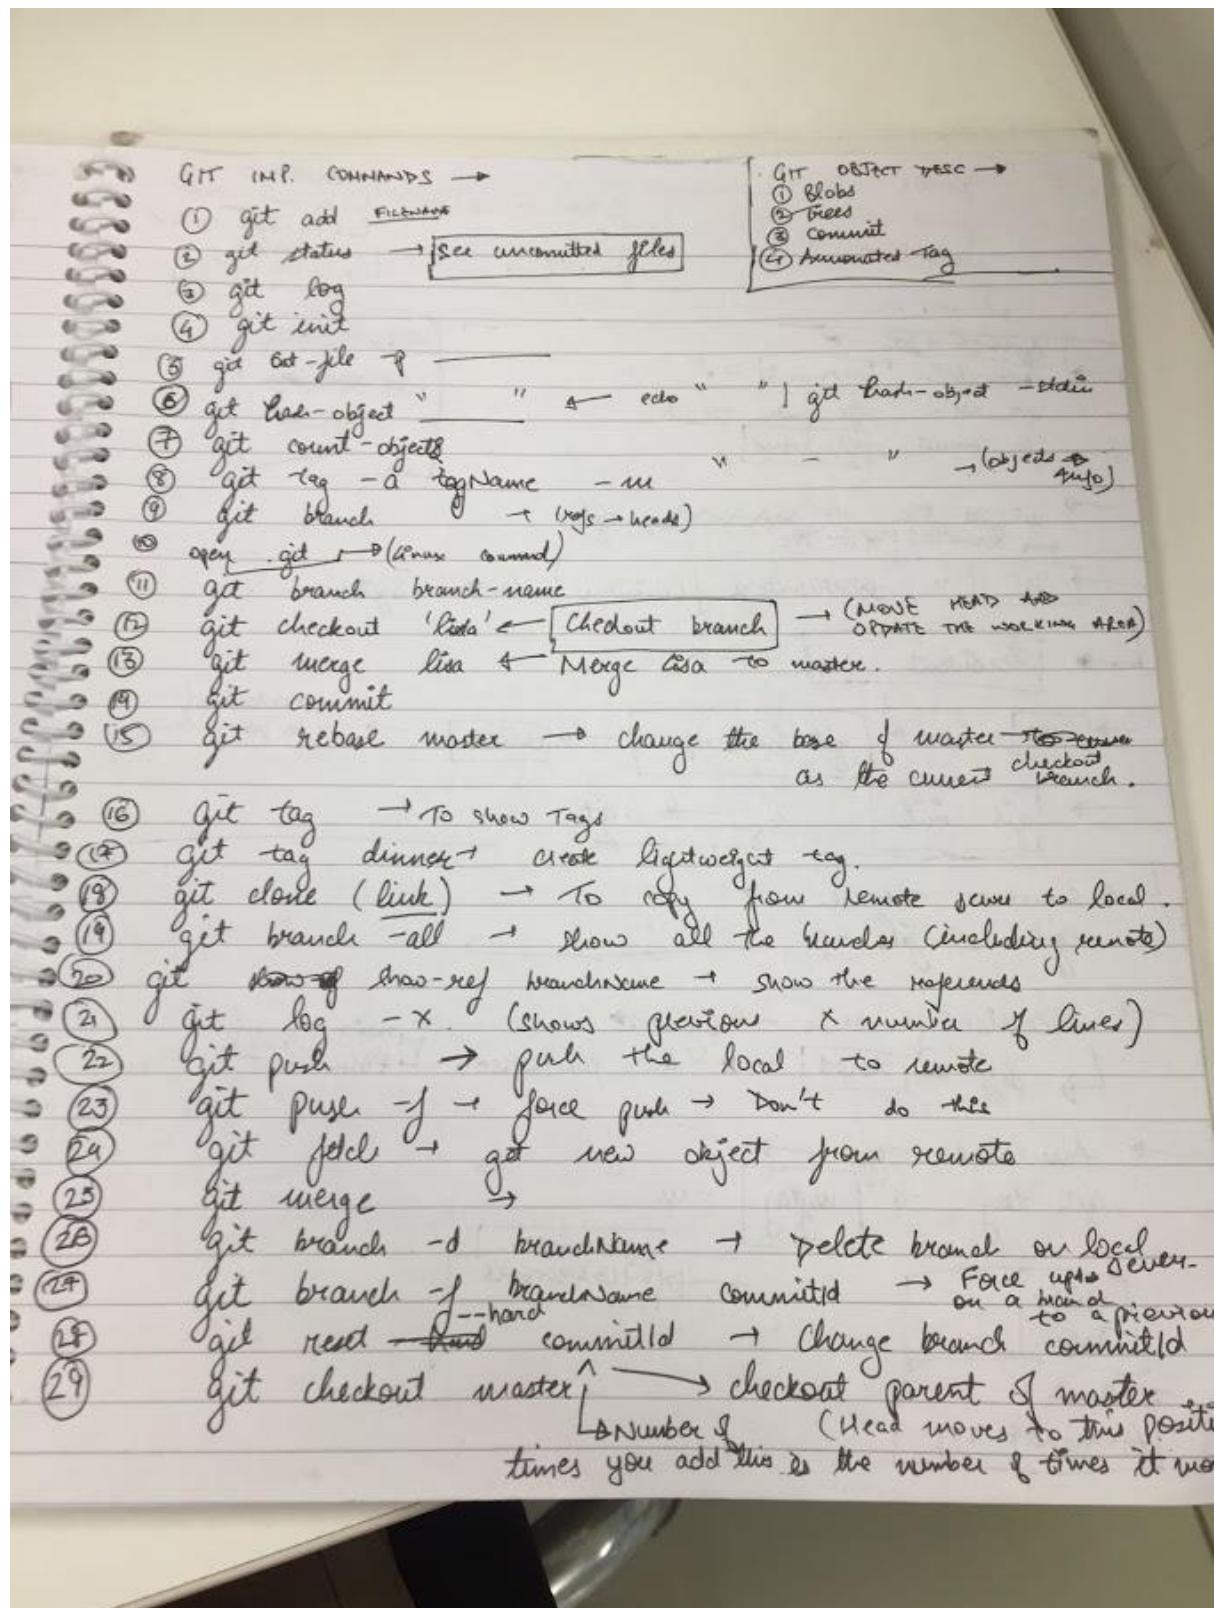 GIT IMP. COMMANDS →
GIT OBJECT DESC →
① Blobs
② Trees
③ Commit
④ Annonated Tag
① git add FILENAME
② git status → See uncomitted files
③ git log
④ git init
⑤ git cat-file -p
⑥ git hash-object " " ← echo " " | git hash-object -stdin
⑦ git count-objects
⑧ git tag -a tagName -m " - " → (objects → info)
⑨ git branch → (refs → heads)
⑩ open .git → (Linux command)
⑪ git branch branch-name
⑫ git checkout 'lisa' ← Checkout branch → (MOVE HEAD AND UPDATE THE WORKING AREA)
⑬ git merge lisa ← Merge lisa to master.
⑭ git commit
⑮ git rebase master → change the base of master
as the current checkout branch.
⑯ git tag → To show Tags
⑰ git tag dinner → create lightweight tag.
⑱ git clone (link) → To copy from remote server to local.
⑲ git branch -all → show all the branches (including remote)
⑳ git show-ref branchName → show the references
㉑ git log -x. (shows previous x number of lines)
㉒ git push → push the local to remote
㉓ git push -f → force push → Don't do this
㉔ git fetch → get new object from remote
㉕ git merge →
㉖ git branch -d branchName → Delete branch on local
㉗ git branch -f branchName commitId → Force
on a branch
to a previous
㉘ git reset --hard commitId → Change branch commitId
㉙ git checkout master^ → checkout parent of master
↳ Number of (Head moves to this
times you add this is the number of times it